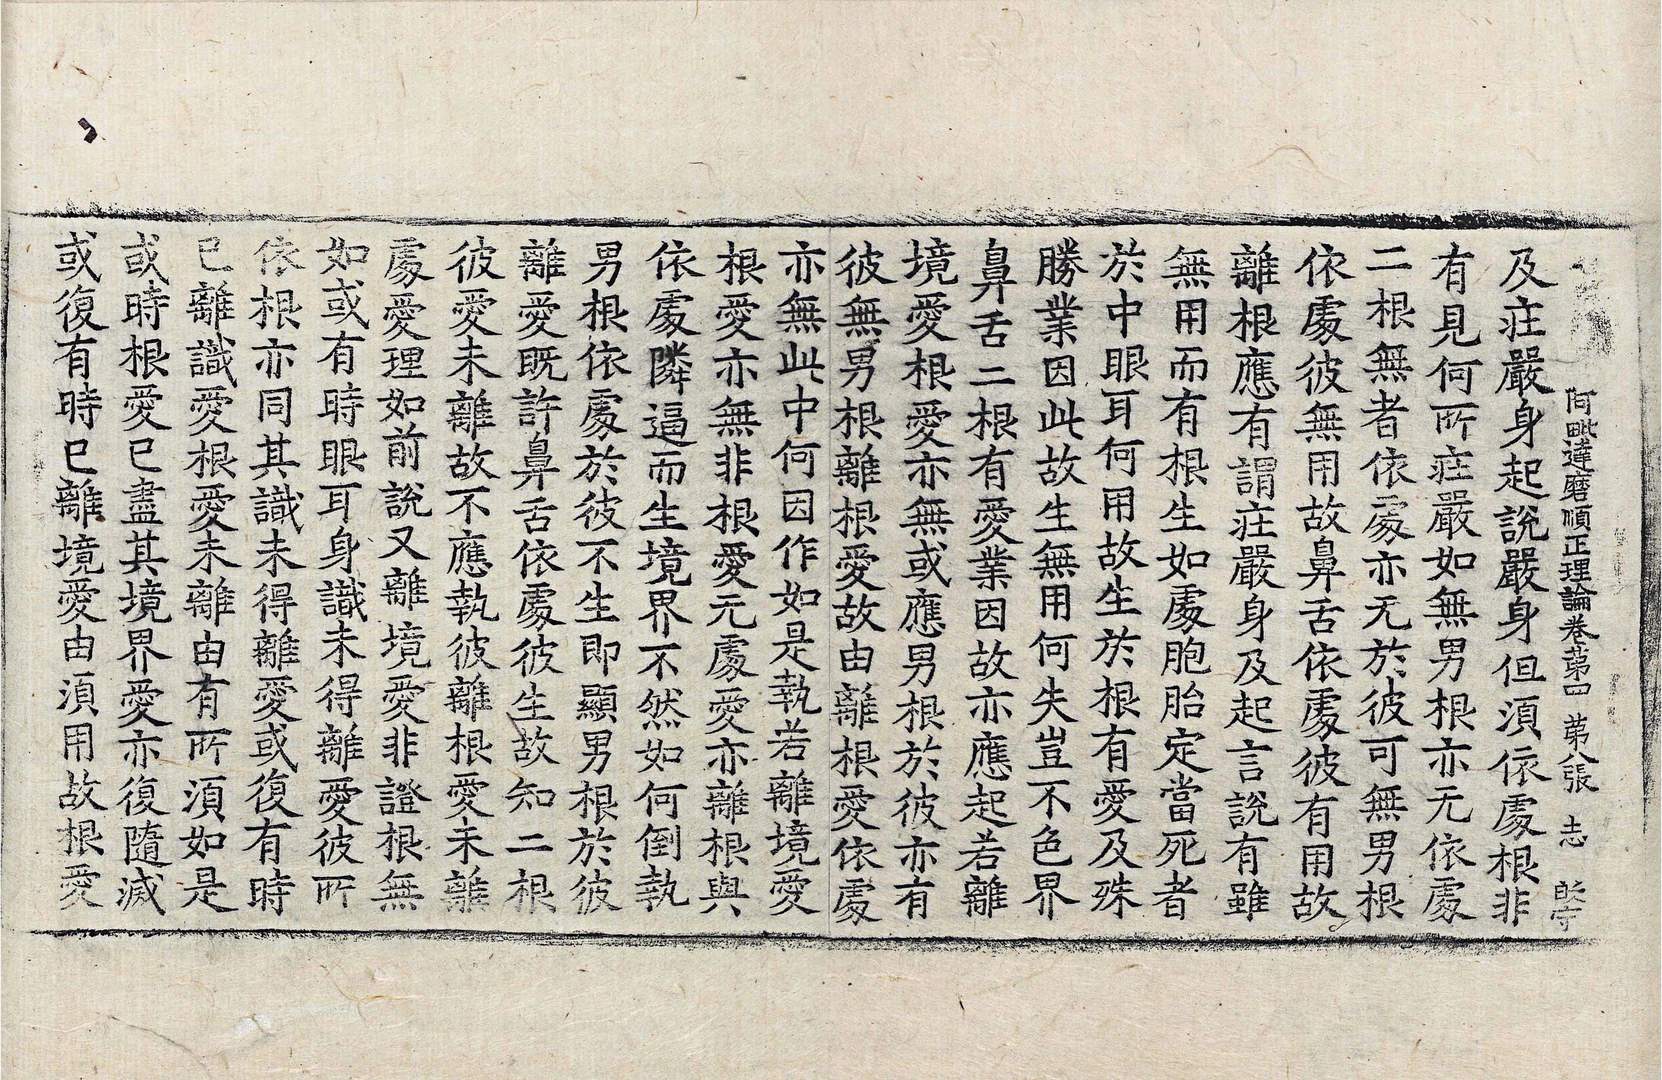 阿毗達磨順正理論卷第四　第八張　志
及莊嚴身起說嚴身但湏依處根非
有見何所莊嚴如無男根亦无依處
二根無者依處亦无於彼可無男根
依處彼無用故鼻舌依處彼有用故
離根應有謂莊嚴身及起言說有雖
無用而有根生如處胞胎定當死者
於中眼耳何用故生於根有愛及殊
勝業因此故生無用何失豈不色界
鼻舌二根有愛業因故亦應起若離
境愛根愛亦無或應男根於彼亦有
彼無男根離根愛故由離根愛依處
亦無此中何因作如是執若離境愛
根愛亦無非根愛元處愛亦離根與
依處隣逼而生境界不然如何倒執
男根依處於彼不生即顯男根於彼
離愛既許鼻舌依處彼生故知二根
彼愛未離故不應執彼離根愛未離
處愛理如前說又離境愛非證根無
如或有時眼耳身識未得離愛彼所
依根亦同其識未得離愛或復有時
已離識愛根愛未離由有所湏如是
或時根愛已盡其境界愛亦復隨減
或復有時已離境愛由湏用故根愛